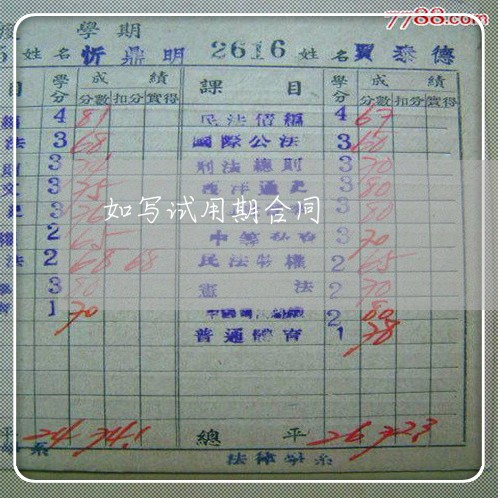 7788.com
學期
姓名 忻鼎明 2616 姓名 賈泰德
目 學分 成績 課目 學分 成績
分數 扣分 實得 分數 扣分 實得
4 81 民法債編 4 67
法 3 68 國際公法 3 60
3 刑法總則 3 70
3 75 西洋通史 3 80
3 3 80
2 65 3 70
法 2 68 68 民法物權 2 65
3 80 憲法 2 70
1 70 2 80
普通體育 1 78
如写试用期合同
平 24 74.1 總平 26 72.3
系 法律學系